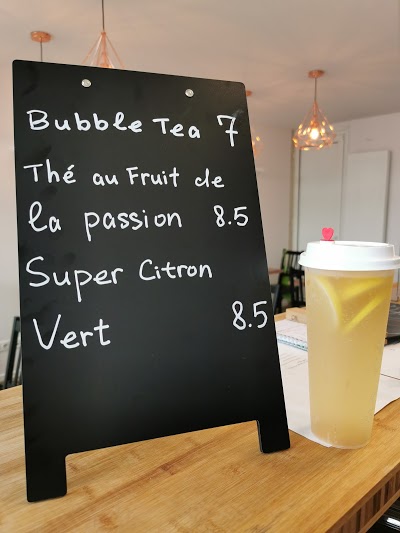 Bubble Tea 7
Thé au Fruit de
la passion 8.5
Super Citron
Vert 8.5